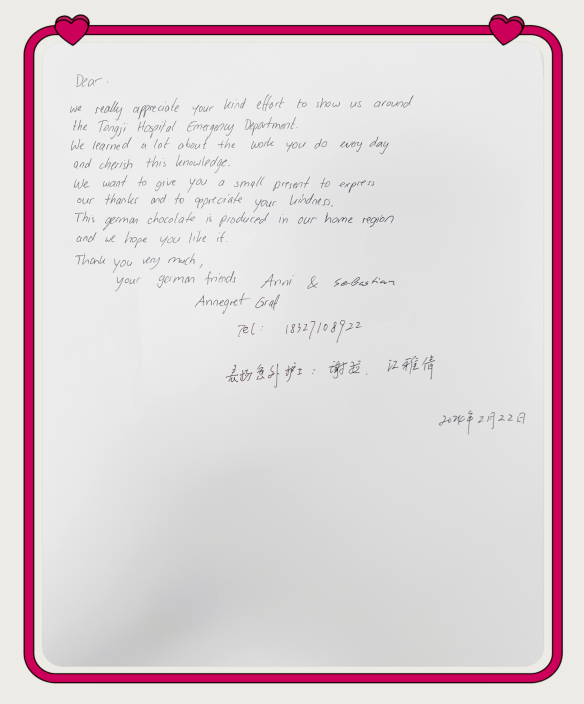 Dear.
we really appreciate your kind effort to show us around
the Tongji Hospital Emergency Department.
We learned a lot about the work you do every day
and cherish this knowledge.
We want to give you a small present to express
our thanks and to appreciate your kindness.
This german chocolate is produced in our home region
and we hope you like it.
Thank you very much,
your german friends Anni & Sebastian
Annegret Graf
Tel: 18327108922
表扬急外护士：谢蕊. 江雅倩
2024年2月22日